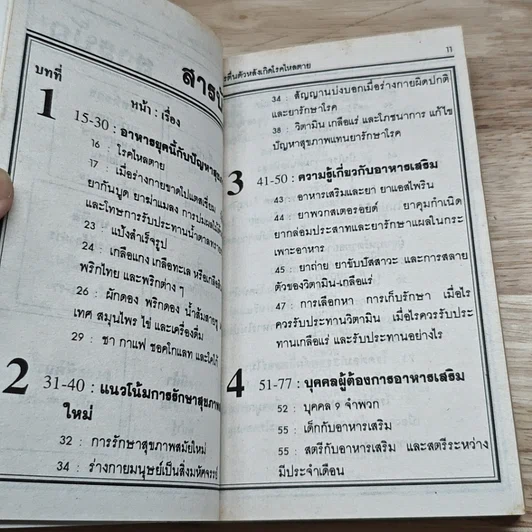 สารบัญ
บทที่
หน้า : เรื่อง
1
15-30 : อาหารยุคนี้กับปัญหาสุข
16 : โรคไหลตาย
17 : เมื่อร่างกายขาดโปแตสเซี่ยม
ยากันบูด ยาฆ่าแมลง การปนเปื้อน
และโทษการรับประทานน้ำตาลทราย
23 : แป้งสำเร็จรูป
24 : เกลือแกง เกลือทะเล หรือเกลือ
พริกไทย และพริกต่าง ๆ
26 : ผักดอง พริกดอง น้ำส้มสายชู
เทศ สมุนไพร ไข่ และเครื่องดื่ม
29 : ชา กาแฟ ชอคโกแลท และโคล่า
2
31-40 : แนวโน้มการรักษาสุขภาพ
ใหม่
32 : การรักษาสุขภาพสมัยใหม่
34 : ร่างกายมนุษย์เป็นสิ่งมหัศจรรย์
ตื่นตัวหลังเกิดโรคไหลตาย
11
34 : สัญญาณบ่งบอกเมื่อร่างกายผิดปกติ
และยารักษาโรค
38 : วิตามิน เกลือแร่ และโภชนาการ แก้ไข
ปัญหาสุขภาพแทนยารักษาโรค
3
41-50 : ความรู้เกี่ยวกับอาหารเสริม
43 : อาหารเสริมและยา ยาแอสไพริน
44 : ยาพวกสเตอรอยด์ ยาคุมกำเนิด
ยากล่อมประสาทและยารักษาแผลในกระ
เพาะอาหาร
45 : ยาถ่าย ยาขับปัสสาวะ และการสลาย
ตัวของวิตามิน-เกลือแร่
47 : การเลือกหา การเก็บรักษา เมื่อไร
ควรรับประทานวิตามิน เมื่อไรควรรับประ
ทานเกลือแร่ และรับประทานอย่างไร
4
51-77 : บุคคลผู้ต้องการอาหารเสริม
52 : บุคคล 9 จำพวก
55 : เด็กกับอาหารเสริม
55 : สตรีกับอาหารเสริม และสตรีระหว่าง
มีประจำเดือน